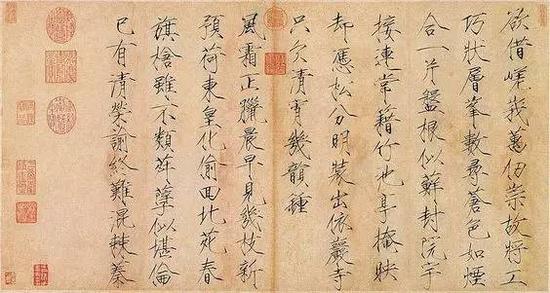 欲借嵯峨萬仞崇故將工
巧狀層峯數尋蒼色如煙
合一片盤根似蘚封院宇
接連常藉竹池亭掩映
却應松分明裝出依巖寺
只欠清宵幾韻鍾
風霜正臘晨早見幾枝新
預荷東皇化偷回北苑春
旗槍雖不類荈孽似堪倫
已有清榮諭終難混棘蓁